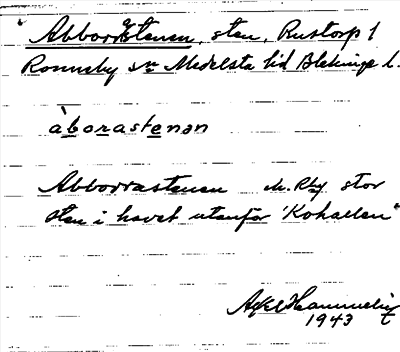 Abborrstenen, sten, Rustorp 1
Ronneby sn Medelsta hd Blekinge l.
àborastenən
Abborrastenen
sten i havet utanför 'Kohallen"
1943